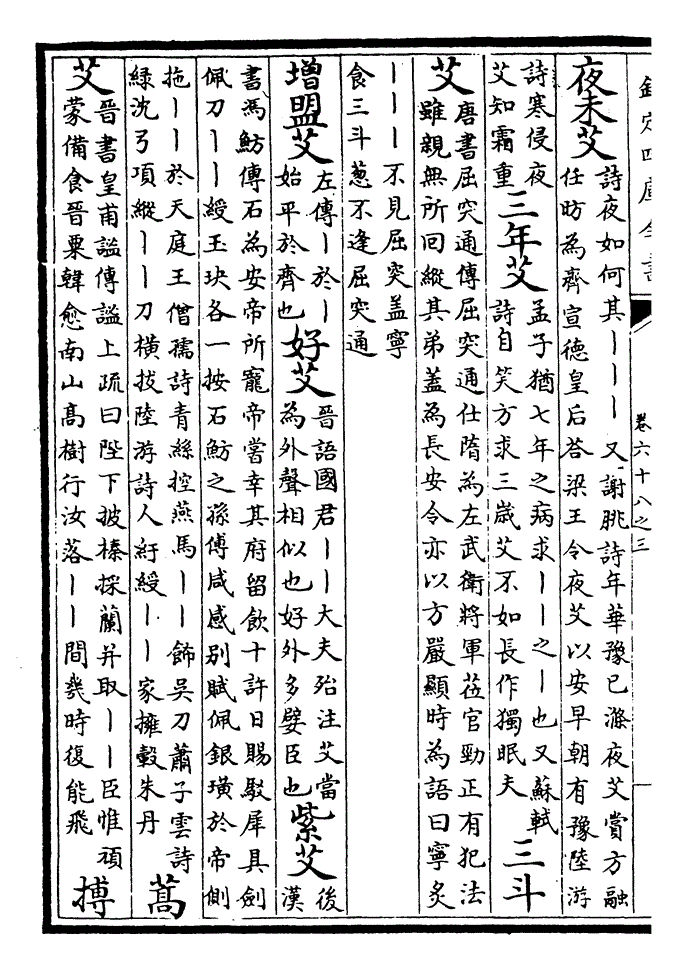 欽定四庫全書
卷六十八之三
夜未艾
詩夜如何其丨丨丨又謝朓詩年華豫已滌夜艾賞方融
任昉為齊宣德皇后荅梁王令夜艾以安早朝有豫陸游
詩寒侵夜
艾知霜重
三年艾
孟子猶七年之病求丨丨之丨也又蘇軾
詩自笑方求三嵗艾不如長作獨眠夫
三斗
艾
唐書屈突通傳屈突通仕隋為左武衛將軍莅官勁正有犯法
雖親無所回縱其弟蓋為長安令亦以方嚴顯時為語曰寧炙
丨丨丨不見屈突盖寧
食三斗葱不逢屈突通
增盟艾
左傳丨於丨
始平於齊也
好艾
晉語國君丨丨大夫殆注艾當
為外聲相似也好外多嬖臣也
紫艾
後
漢
書馮魴傳石為安帝所寵帝嘗幸其府留飲十許日賜駁犀具劍
佩刀丨丨綬玉玦各一按石魴之孫傅咸感别賦佩銀璜於帝側
拖丨丨於天庭王僧孺詩青絲控燕馬丨丨飾吳刀蕭子雲詩
緑沈弓項縱丨丨刀橫拔陸游詩人紆綬丨丨家擁轂朱丹
蒿
艾
晉書皇甫謐傳謐上疏曰陛下披榛採蘭并取丨丨臣惟頑
蒙備食晉粟韓愈南山高樹行汝落丨丨間幾時復能飛
搏